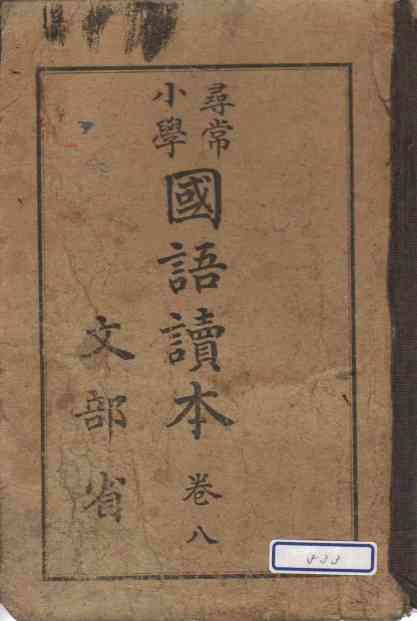 尋常
小學
國語讀本 卷八
文部省
333